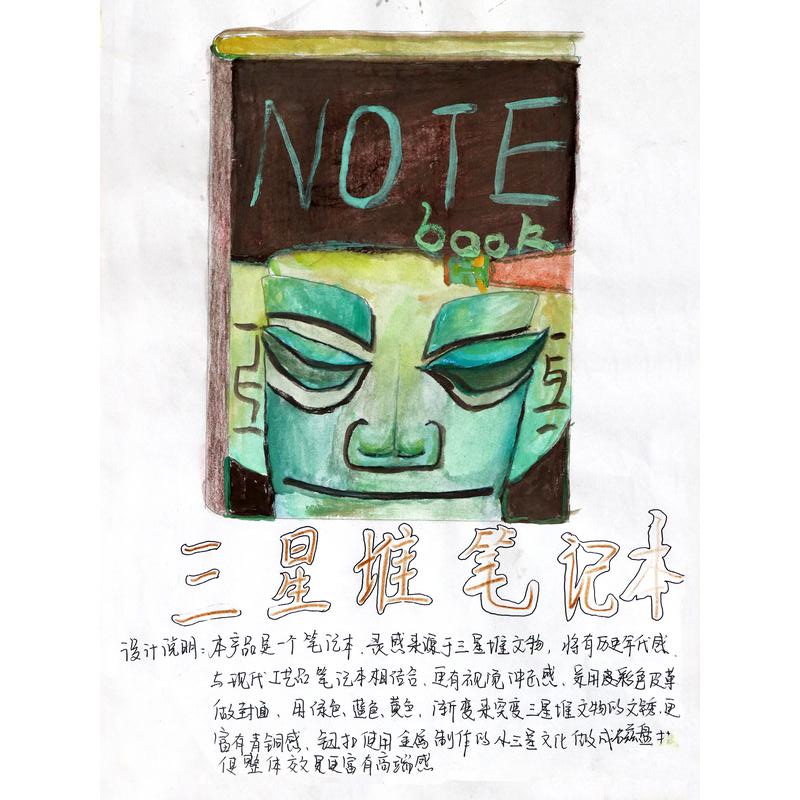 NOTE
book
三星堆笔记本
设计说明：本产品是一个笔记本，灵感来源于三星堆文物，将有历史年代感
与现代工艺品笔记本相结合，更有视境冲击感、采用皮彩色皮革
做封面、用绿色、蓝色、黄色，渐变来突变三星堆文物的文锈，更
富有青铜感、钮扣使用金属制作的从三星文化做成磁盘扣
使整体效果更富有高端感